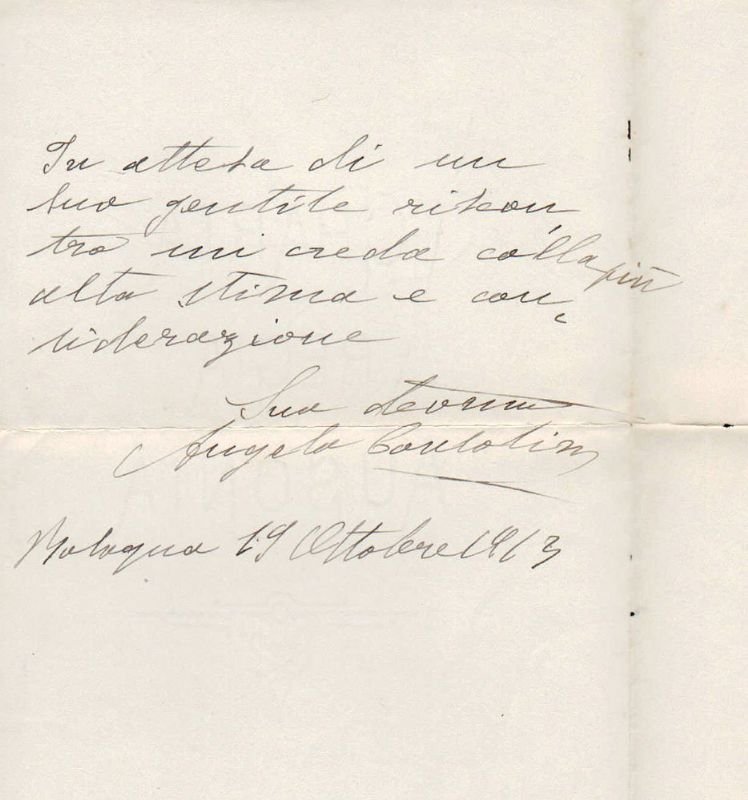 In attesa di un
suo gentile riscon
tro mi creda colla più
alta stima e con
siderazione
Suo devmo
Angelo
Bologna 19 Ottobre 1913